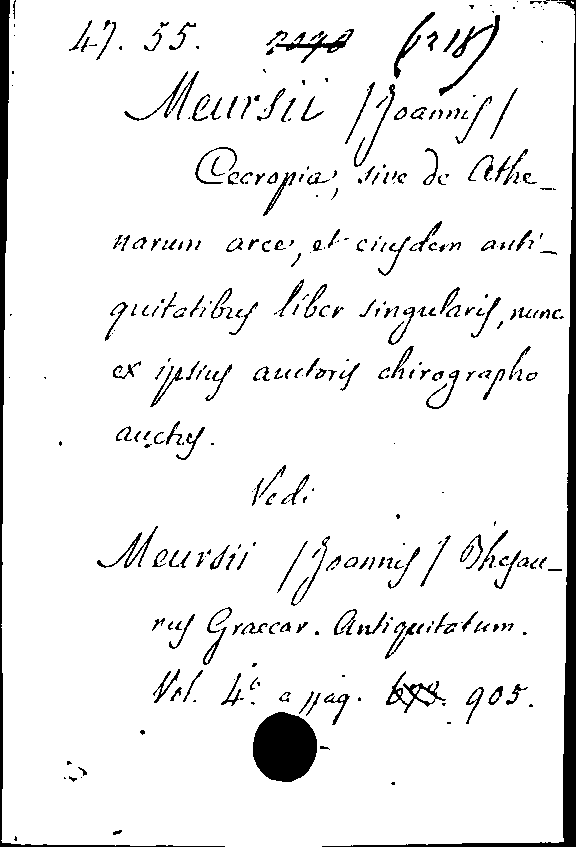 47. 55. (6218)
Meursii /Joannis/
Cecropia, sive de Athe-
narum arce, et eiusdem anti-
quitatibus liber singularis, nunc
ex ipsius auctoris chirographo
auctus.
Vedi
Meursii /Joannis/ Thesau-
rus Graecar. Antiquitatum.
Vol. 4.º a pag. 673. 905.